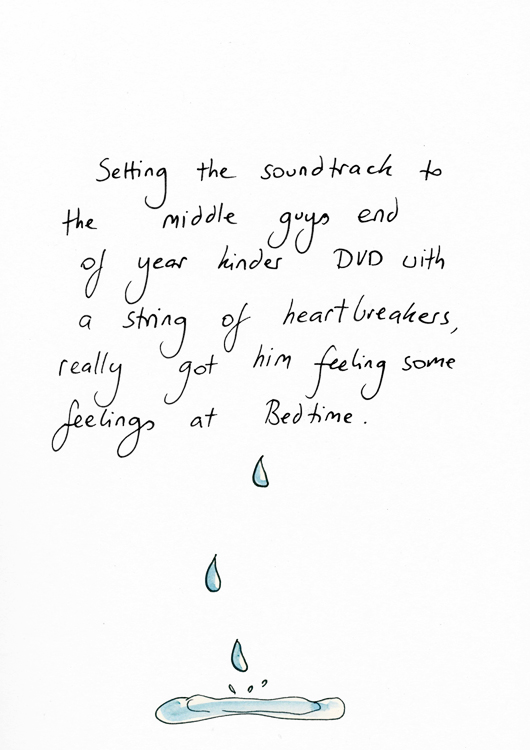 Setting the soundtrack to
the middle guys end
of year kinder DVD with
a string of heartbreakers,
really got him feeling some
feelings at Bedtime.